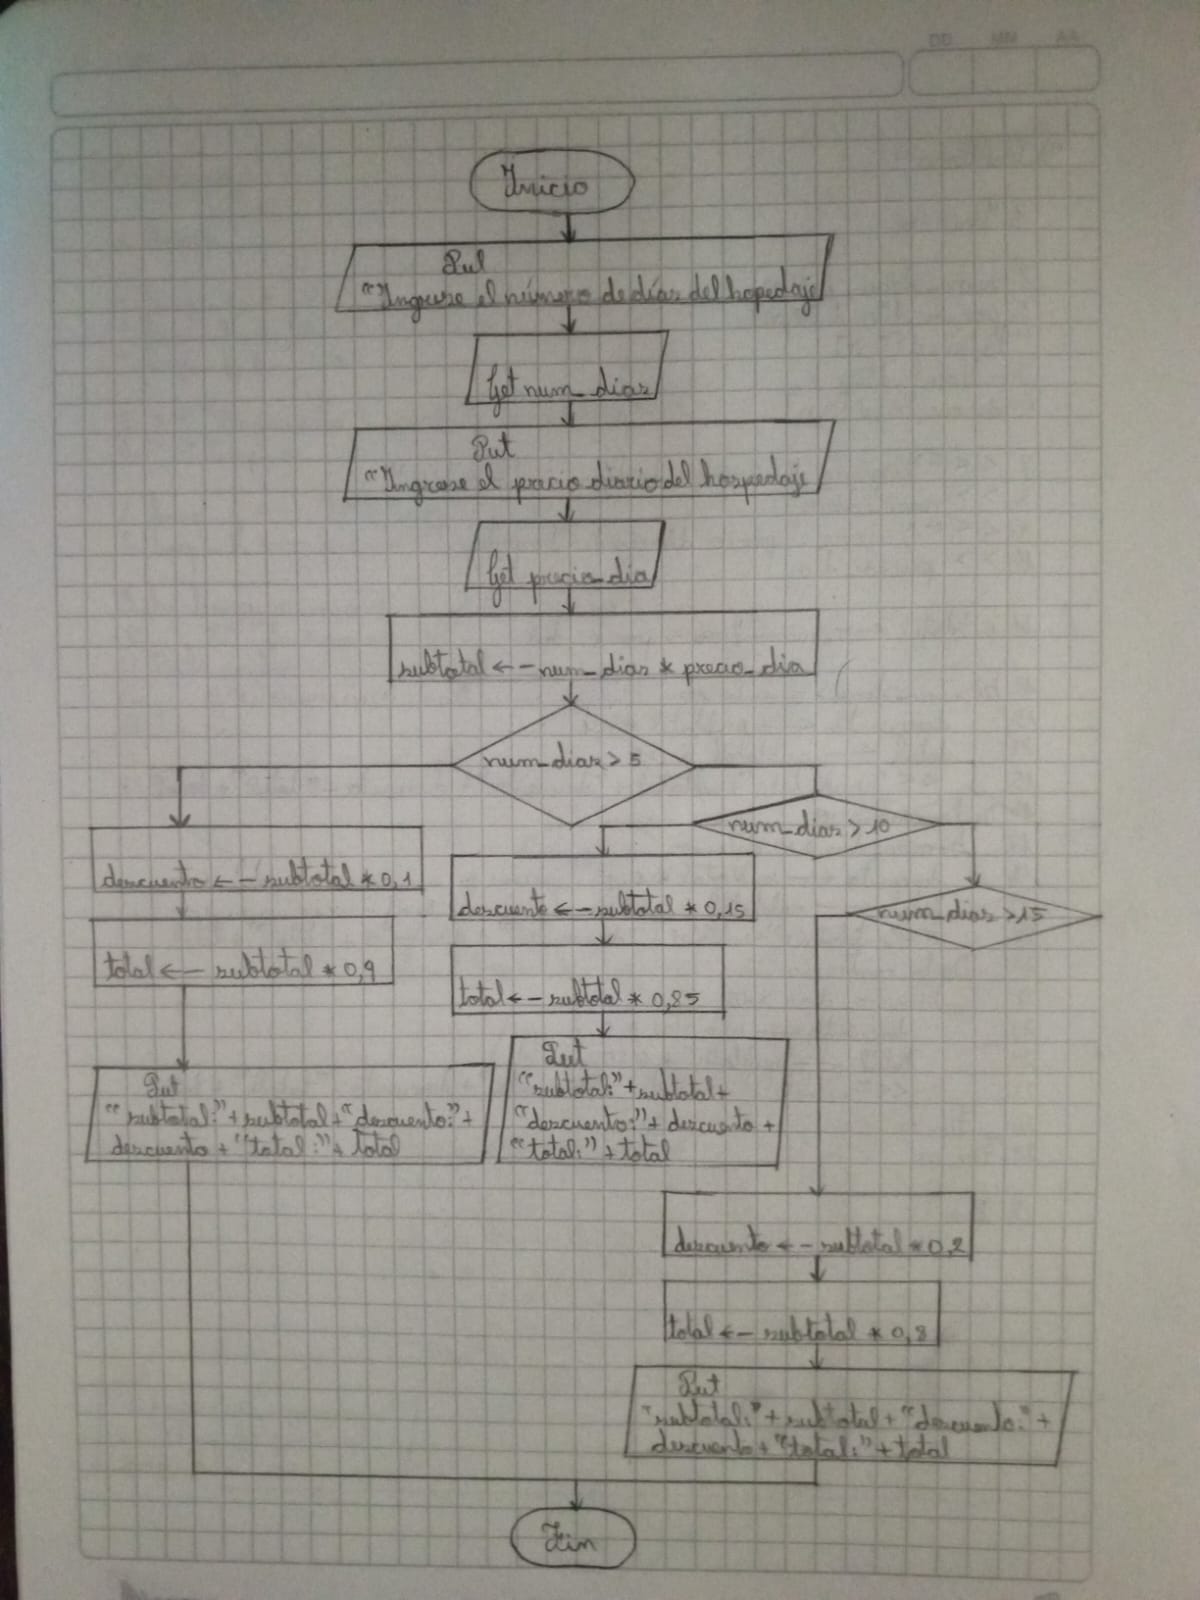 DD MM AA
Inicio
Put
"Ingrese el número de días del hopedaje
Get num_dias
Put
"Ingrese el precio diario del hospedaje
Get precio_dia
subtotal <-- num_dias * precio_dia
num_dias > 5
num_dias > 10
num_dias > 15
descuento <-- subtotal * 0,1
total <-- subtotal * 0,9
Put
"subtotal:" + subtotal + "descuento:" +
descuento + "total:" + total
descuento <-- subtotal * 0,15
total <-- subtotal * 0,85
Put
"subtotal:" + subtotal +
"descuento:" + descuento +
"total:" + total
descuento <-- subtotal * 0,2
total <-- subtotal * 0,8
Put
"subtotal:" + subtotal + "descuento:" +
descuento + "total:" + total
Fin